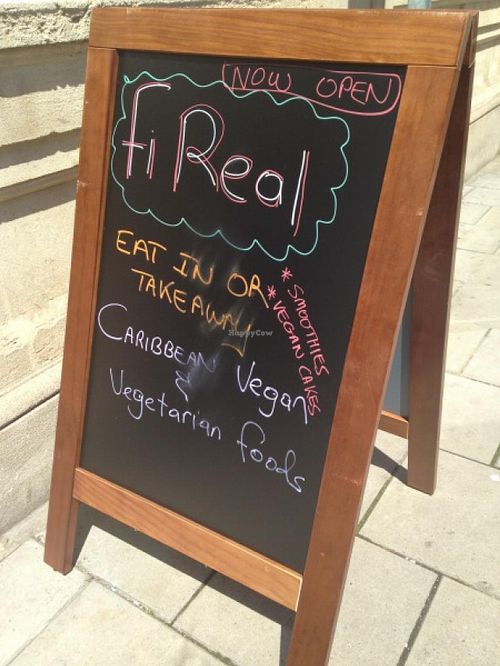 NOW OPEN
fi Real
EAT IN OR
TAKEAWAY
* SMOOTHIES
* VEGAN CAKES
CARIBBEAN Vegan
&
Vegetarian foods
HappyCow